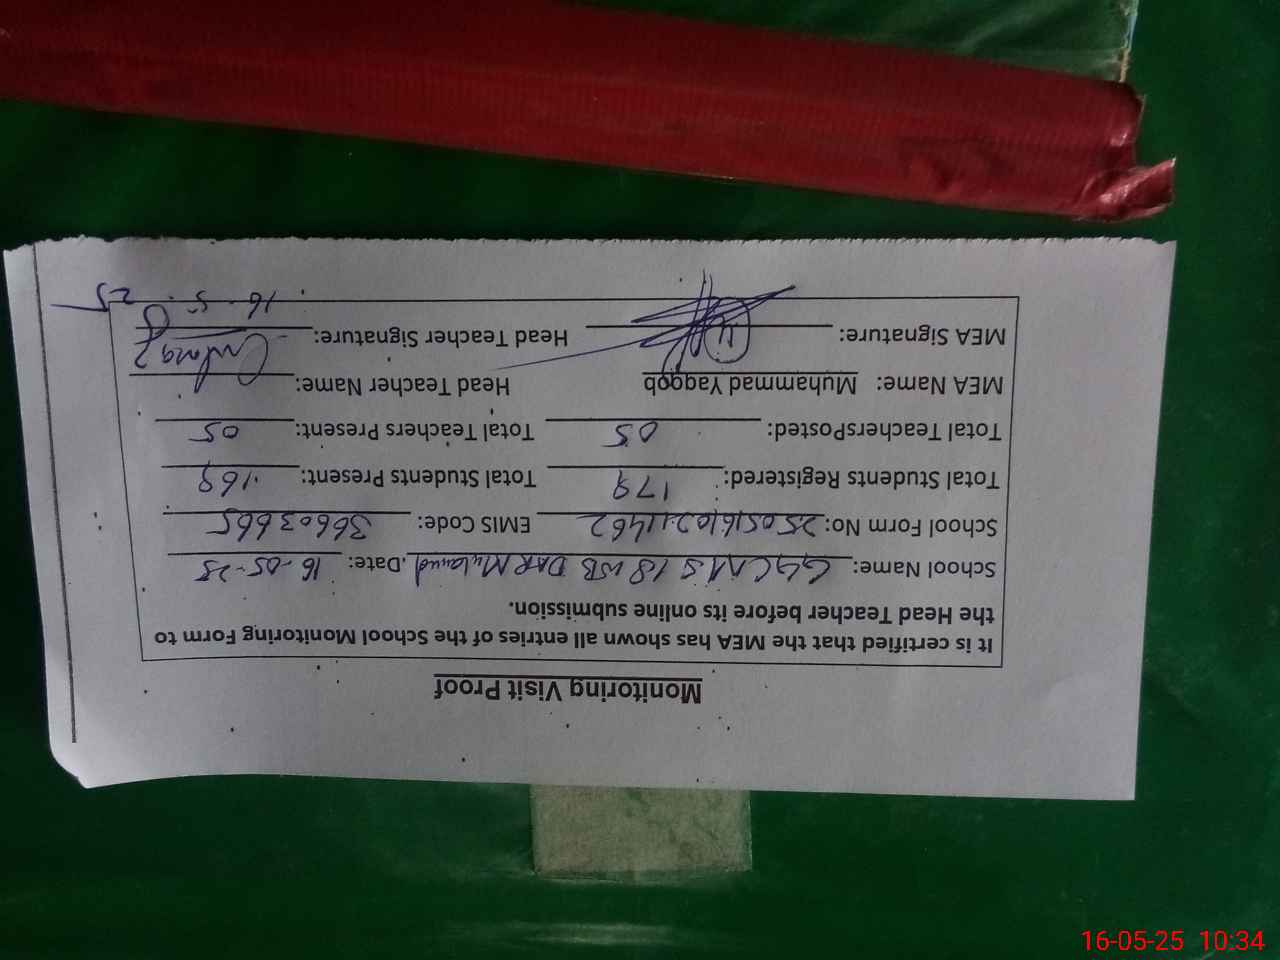 Monitoring Visit Proof
It is certified that the MEA has shown all entries of the School Monitoring Form to
the Head Teacher before its online submission.
School Name: GGCMS 18 WB Date: 16-05-25
School Form No: EMIS Code: 36603665
Total Students Registered: 179 Total Students Present: 169
Total TeachersPosted: 05 Total Teachers Present: 05
MEA Name: Muhammad Yaqoob Head Teacher Name:
MEA Signature: Head Teacher Signature:
16-5-25
16-05-25 10:34